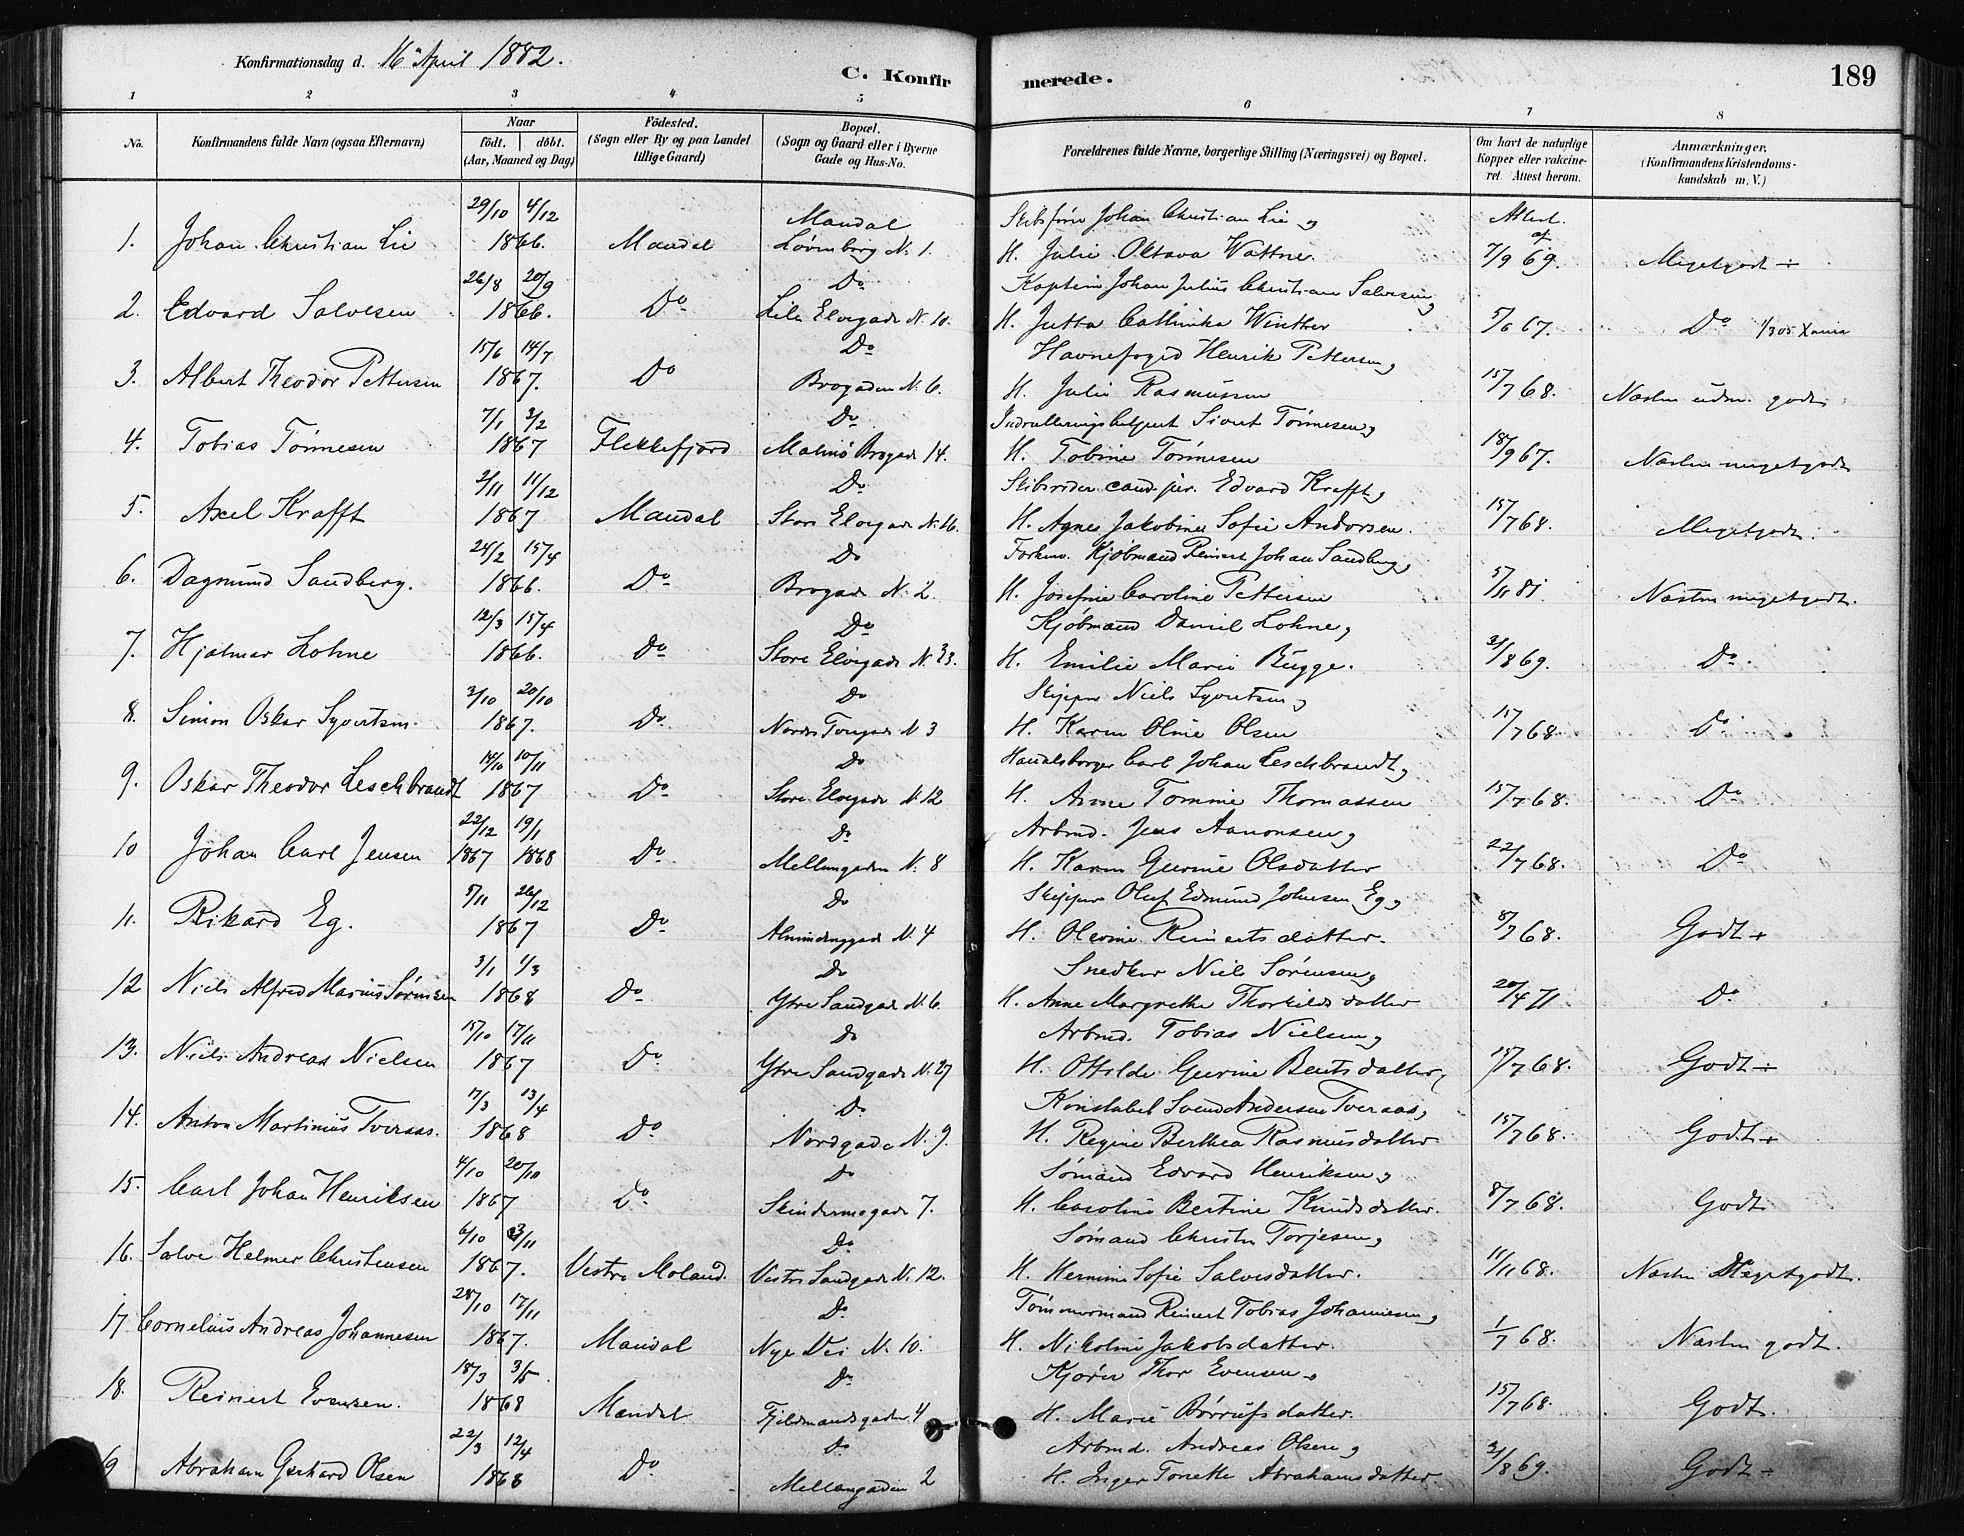 Konfirmationsdag d. 16 April 1882.
C. Konfirmerede.
189
1 2 3 4 5 6 7 8
No.
Konfirmandens fulde Navn (ogsaa Efternavn)
Naar
födt. döbt.
(Aar, Maaned og Dag)
Födested.
(Sogn eller By og paa Landet
tillige Gaard)
Bopæl.
(Sogn og Gaard eller i Byerne
Gade og Hus-No.
Forældrenes fulde Navne, borgerlige Stilling (Næringsvei) og Bopæl.
Om havt de naturlige
Kopper eller vakcine-
ret. Attest herom.
Anmærkninger.
(Konfirmandens Kristendoms-
kundskab m. V.)
29/10 4/12 Mandal Skibsfører Johan Christian Lie og Attest af
1. Johan Christian Lie 1866. Mandal N. 1. H. Julie Oktava Wattne. 7/9 69. Megetgodt ÷
26/8 20/9 Do Kaptein Johan Julius Christian Salvesen og
2. Edvard Salvesen 1866. Do Lille Elvegade N. 10. H. Jutta Cathinka Winther 5/6 67. Do
15/6 14/7 Do Havnefoged Henrik Pettersen og
3. Albert Theodor Pettersen 1867. Do Brogaden N. 6. H. Julie Rasmussen 15/7 68. Næsten udm. godt
7/1 3/2 Do Sivert Tønnesen og
4. Tobias Tønnesen 1867 Flekkefjord Malmø Brogade 14. H. Tobine Tønnesen 18/9 67. Næsten megetgodt
2/11 11/12 Do cand. jur. Edvard Krafft og
5. Axel Krafft 1867 Mandal Store Elvegade N. 16. H. Agnes Jakobine Sofie Andorsen. 15/7 68. Megetgodt.
24/2 15/4 Do Kjøbmand Reinert Johan Sandberg og
6. Dagmund Sandberg. 1866. Do Brogade N. 2. H. Josefine Caroline Pettersen 5/11 81 Næsten megetgodt.
12/3 15/4 Do Kjøbmand Daniel Lohne og
7. Hjalmar Lohne 1866. Do Store Elvegade N. 33. H. Emilie Marie Bugge. 31/8 69. Do
3/10 20/10 Do Skipper Niels Syvertsen og
8. Simon Oskar Syvertsen. 1867. Do N. 3 H. Karen Oline Olsen 15/7 68. Do
14/10 10/11 Do Handelsborger Carl Johan Leschbrandt og
9. Oskar Theodor Leschbrandt 1867 Do Store Elvegade N. 12 H. Anne Tomine Thomassen 15/7 68. Do
22/12 19/1 Do Arbmd. Jens Aanonsen og
10 Johan Carl Jensen 1867 1868 Do Mellemgaden N. 8 H. Karen Gurine Olsdatter 22/7 68. Do
5/11 26/12 Do Skipper Oluf Edmund Johnsen Eg og
11. Rikard Eg. 1867 Do N. 4 H. Olevine Reinertsdatter. 8/7 68. Godt +
3/1 1/3 Do Snedker Niels Sørensen og
12 Niels Alfred Marius Sørensen 1868 Do Ytre Sandgade N. 6. H. Anne Margrethe Thorkildsdatter 20/4 71 Do
15/10 17/11 Do Arbmd. Tobias Nielsen og
13. Niels Andreas Nielsen 1867 Do Ytre Sandgade N. 27 H. Othilde Gurine Bentsdatter 15/7 68. Godt ÷
7/3 13/4 Do Konstabel Svend Andersen Tveraas og
14. Anton Martinius Tveraas. 1868 Do Nordgade N. 9. H. Regine Berthea Rasmusdatter 15/7 68. Godt +
4/10 20/10 Do Sømand Edvard Henriksen og
15. Carl Johan Henriksen 1867 Do Skindernæsgade 7. H. Caroline Bertine Knudsdatter. 8/7 68. Godt
6/10 3/11 Do Sømand Christen Torjesen og
16. Salve Helmer Christensen 1867. Vestre Moland. Vestre Sandgade N. 12. H. Hermine Sofie Salvesdatter. 11/11 68. Næsten Megetgodt.
28/10 17/11 Do Tømmermand Reinert Tobias Johannesen og
17. Cornelius Andreas Johannesen 1867. Mandal Nye Vei N. 10. H. Nikoline Jakobsdatter. 1/7 68. Næsten godt.
18/3 3/5 Do Kjører Thor Evensen og
18. Reinert Evensen. 1868 Mandal 4 H. Marie datter. 15/7 68. Godt.
22/3 12/4 Do Arbmd. Andreas Olsen og
9 Abraham Gerhard Olsen 1868 Do Mellemgaden 2 H. Inger Tonette Abrahamsdatter 31/8 69. Godt ÷